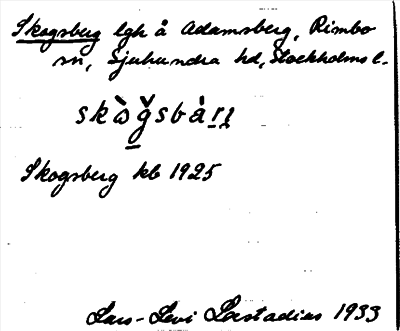 Skogsberg lgh å Adamsberg, Rimbo
sn, Sjuhundra hd, Stockholms l.
skɷ̀ǧsbàrı
Skogsberg kb 1925
Lars-Levi Læstadius 1933